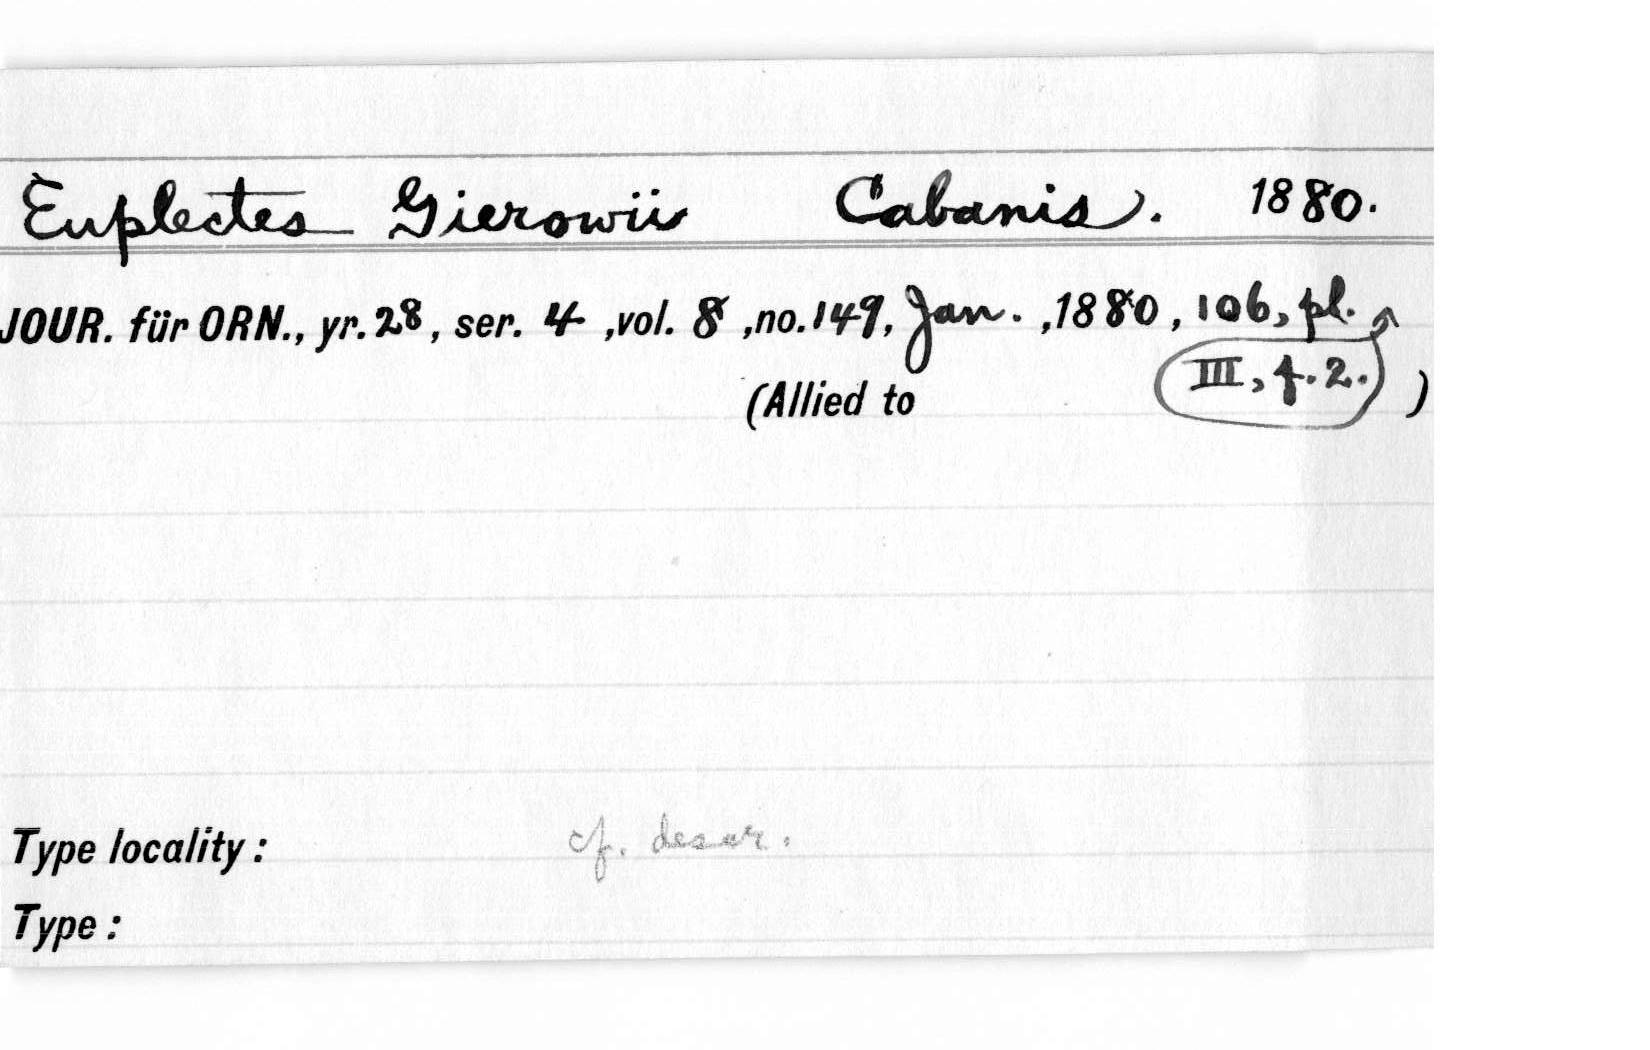 Euplectes Gierowii Cabanis. 1880.
JOUR. für ORN., yr. 28, ser. 4 ,vol. 8 ,no. 149, Jan. ,1880 , 106, pl.
III, f. 2.
(Allied to )
Type locality : cf. descr.
Type :